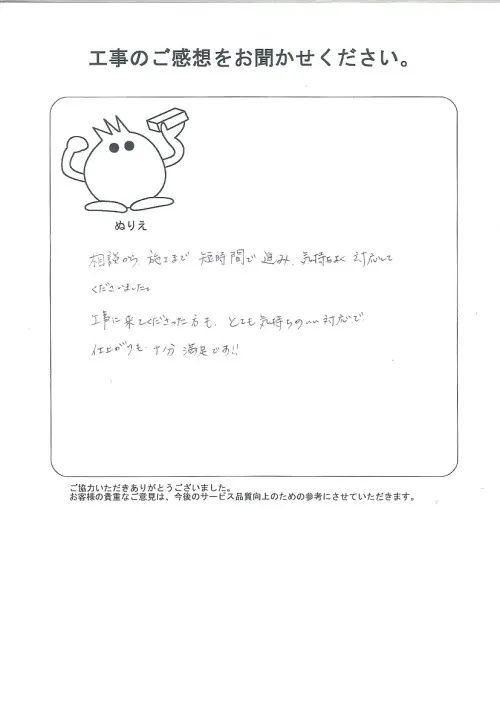 工事のご感想をお聞かせください。
ぬりえ
相談から 施工まで 短時間で 進み、気持ちよく 対応して
くださいました。
工事に来てくださった方も、とても気持ちのいい対応で
仕上がりも 十分 満足です!!
ご協力いただきありがとうございました。
お客様の貴重なご意見は、今後のサービス品質向上のための参考にさせていただきます。